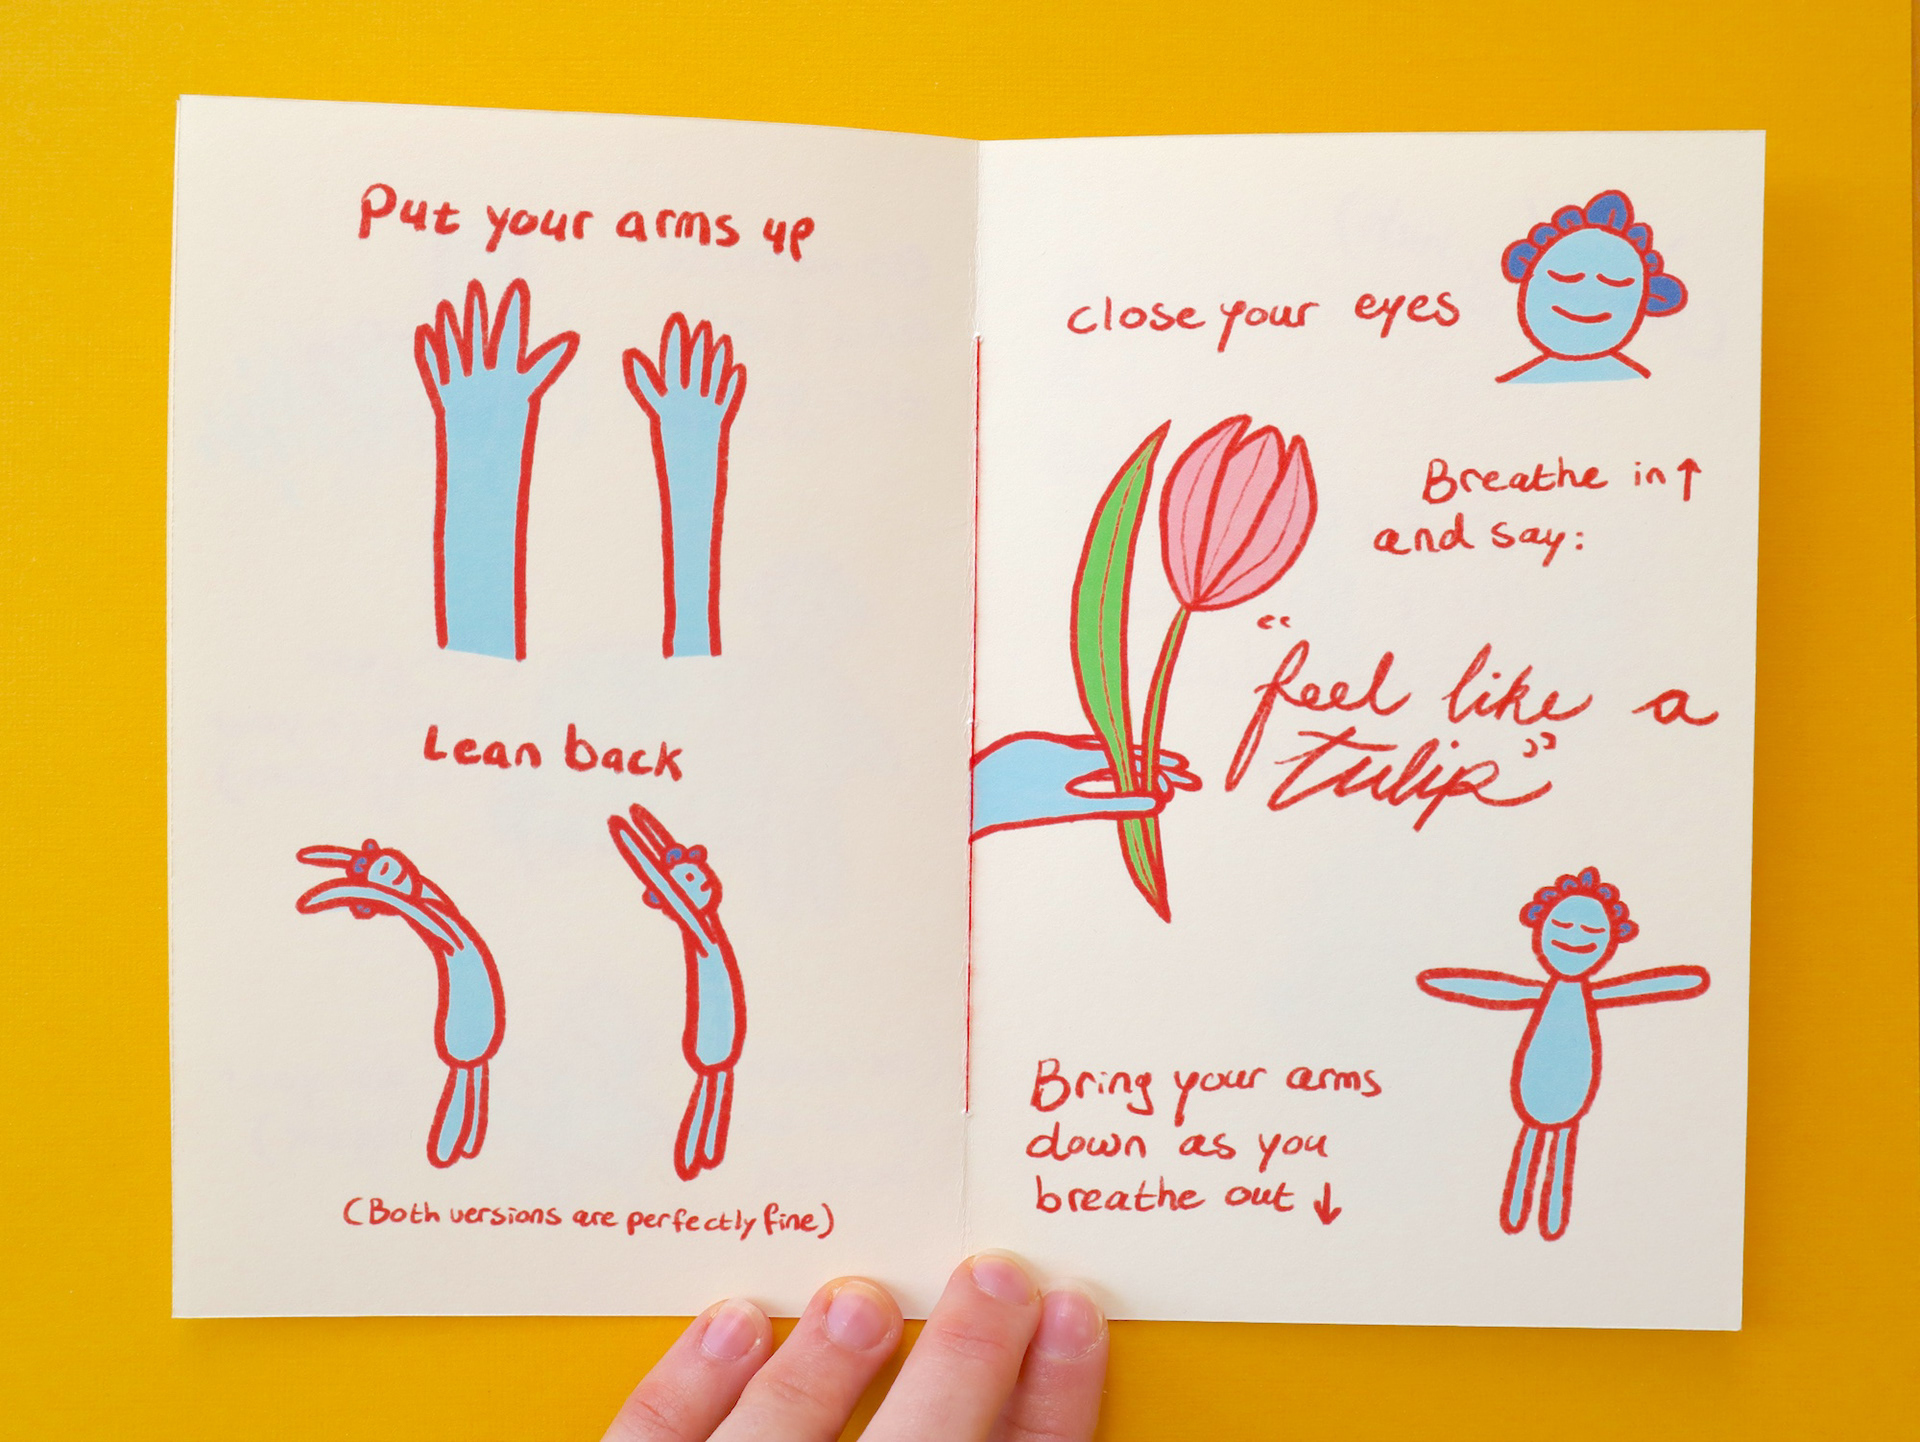 Put your arms up
Lean back
(Both versions are perfectly fine)
close your eyes
Breathe in↑
and say:
“feel like a
tulip”
Bring your arms
down as you
breathe out ↓